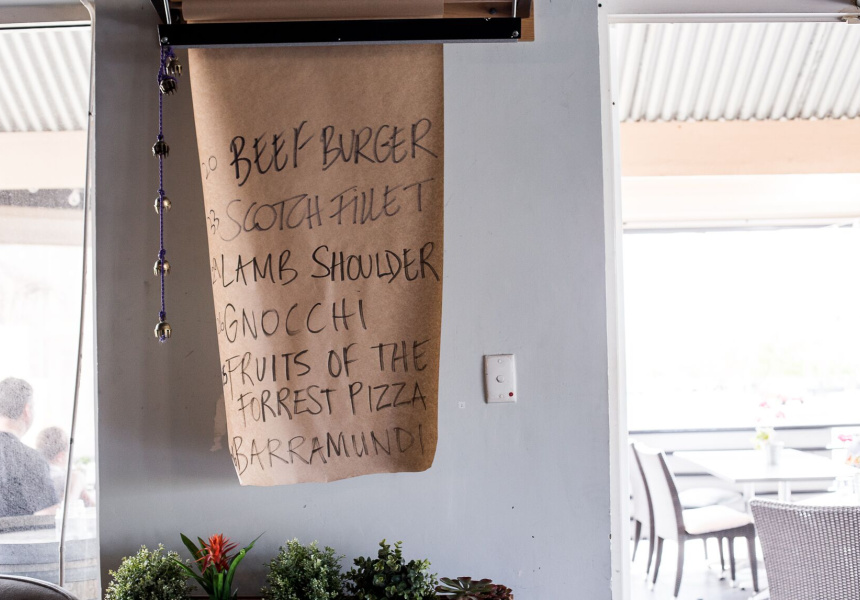 BEEF BURGER
SCOTCH FILLET
LAMB SHOULDER
GNOCCHI
FRUITS OF THE
FORREST PIZZA
BARRAMUNDI